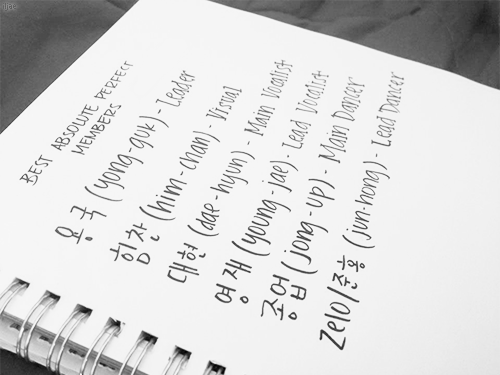 BEST ABSOLUTE PERFECT
MEMBERS
용국 (yong-guk) - Leader
힘찬 (him-chan) - Visual
대현 (dae-hyun) - Main Vocalist
영재 (young-jae) - Lead Vocalist
종업 (jong-up) - Main Dancer
Zelo/준홍 (jun-hong) - Lead Dancer